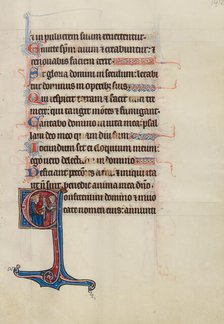 et in pulverem suum revertentur
Emitte spm tuum et creabuntur et
renovabis faciem terre
Sit gloria domini in seculum letabi
tur dominus in operibus suis
Qui respicit terram et facit eam tre
mere qui tangit montes et fumigant
Cantabo domino in vita mea psal
lam deo meo quam diu sum
Iocundum sit ei eloquium meum
ego vero delectabor in domino
Deficiant peccatores a terra et iniqui ita
ut non sint benedic anima mea dno
Confitemini domino et in
vocate nomen eius annunti